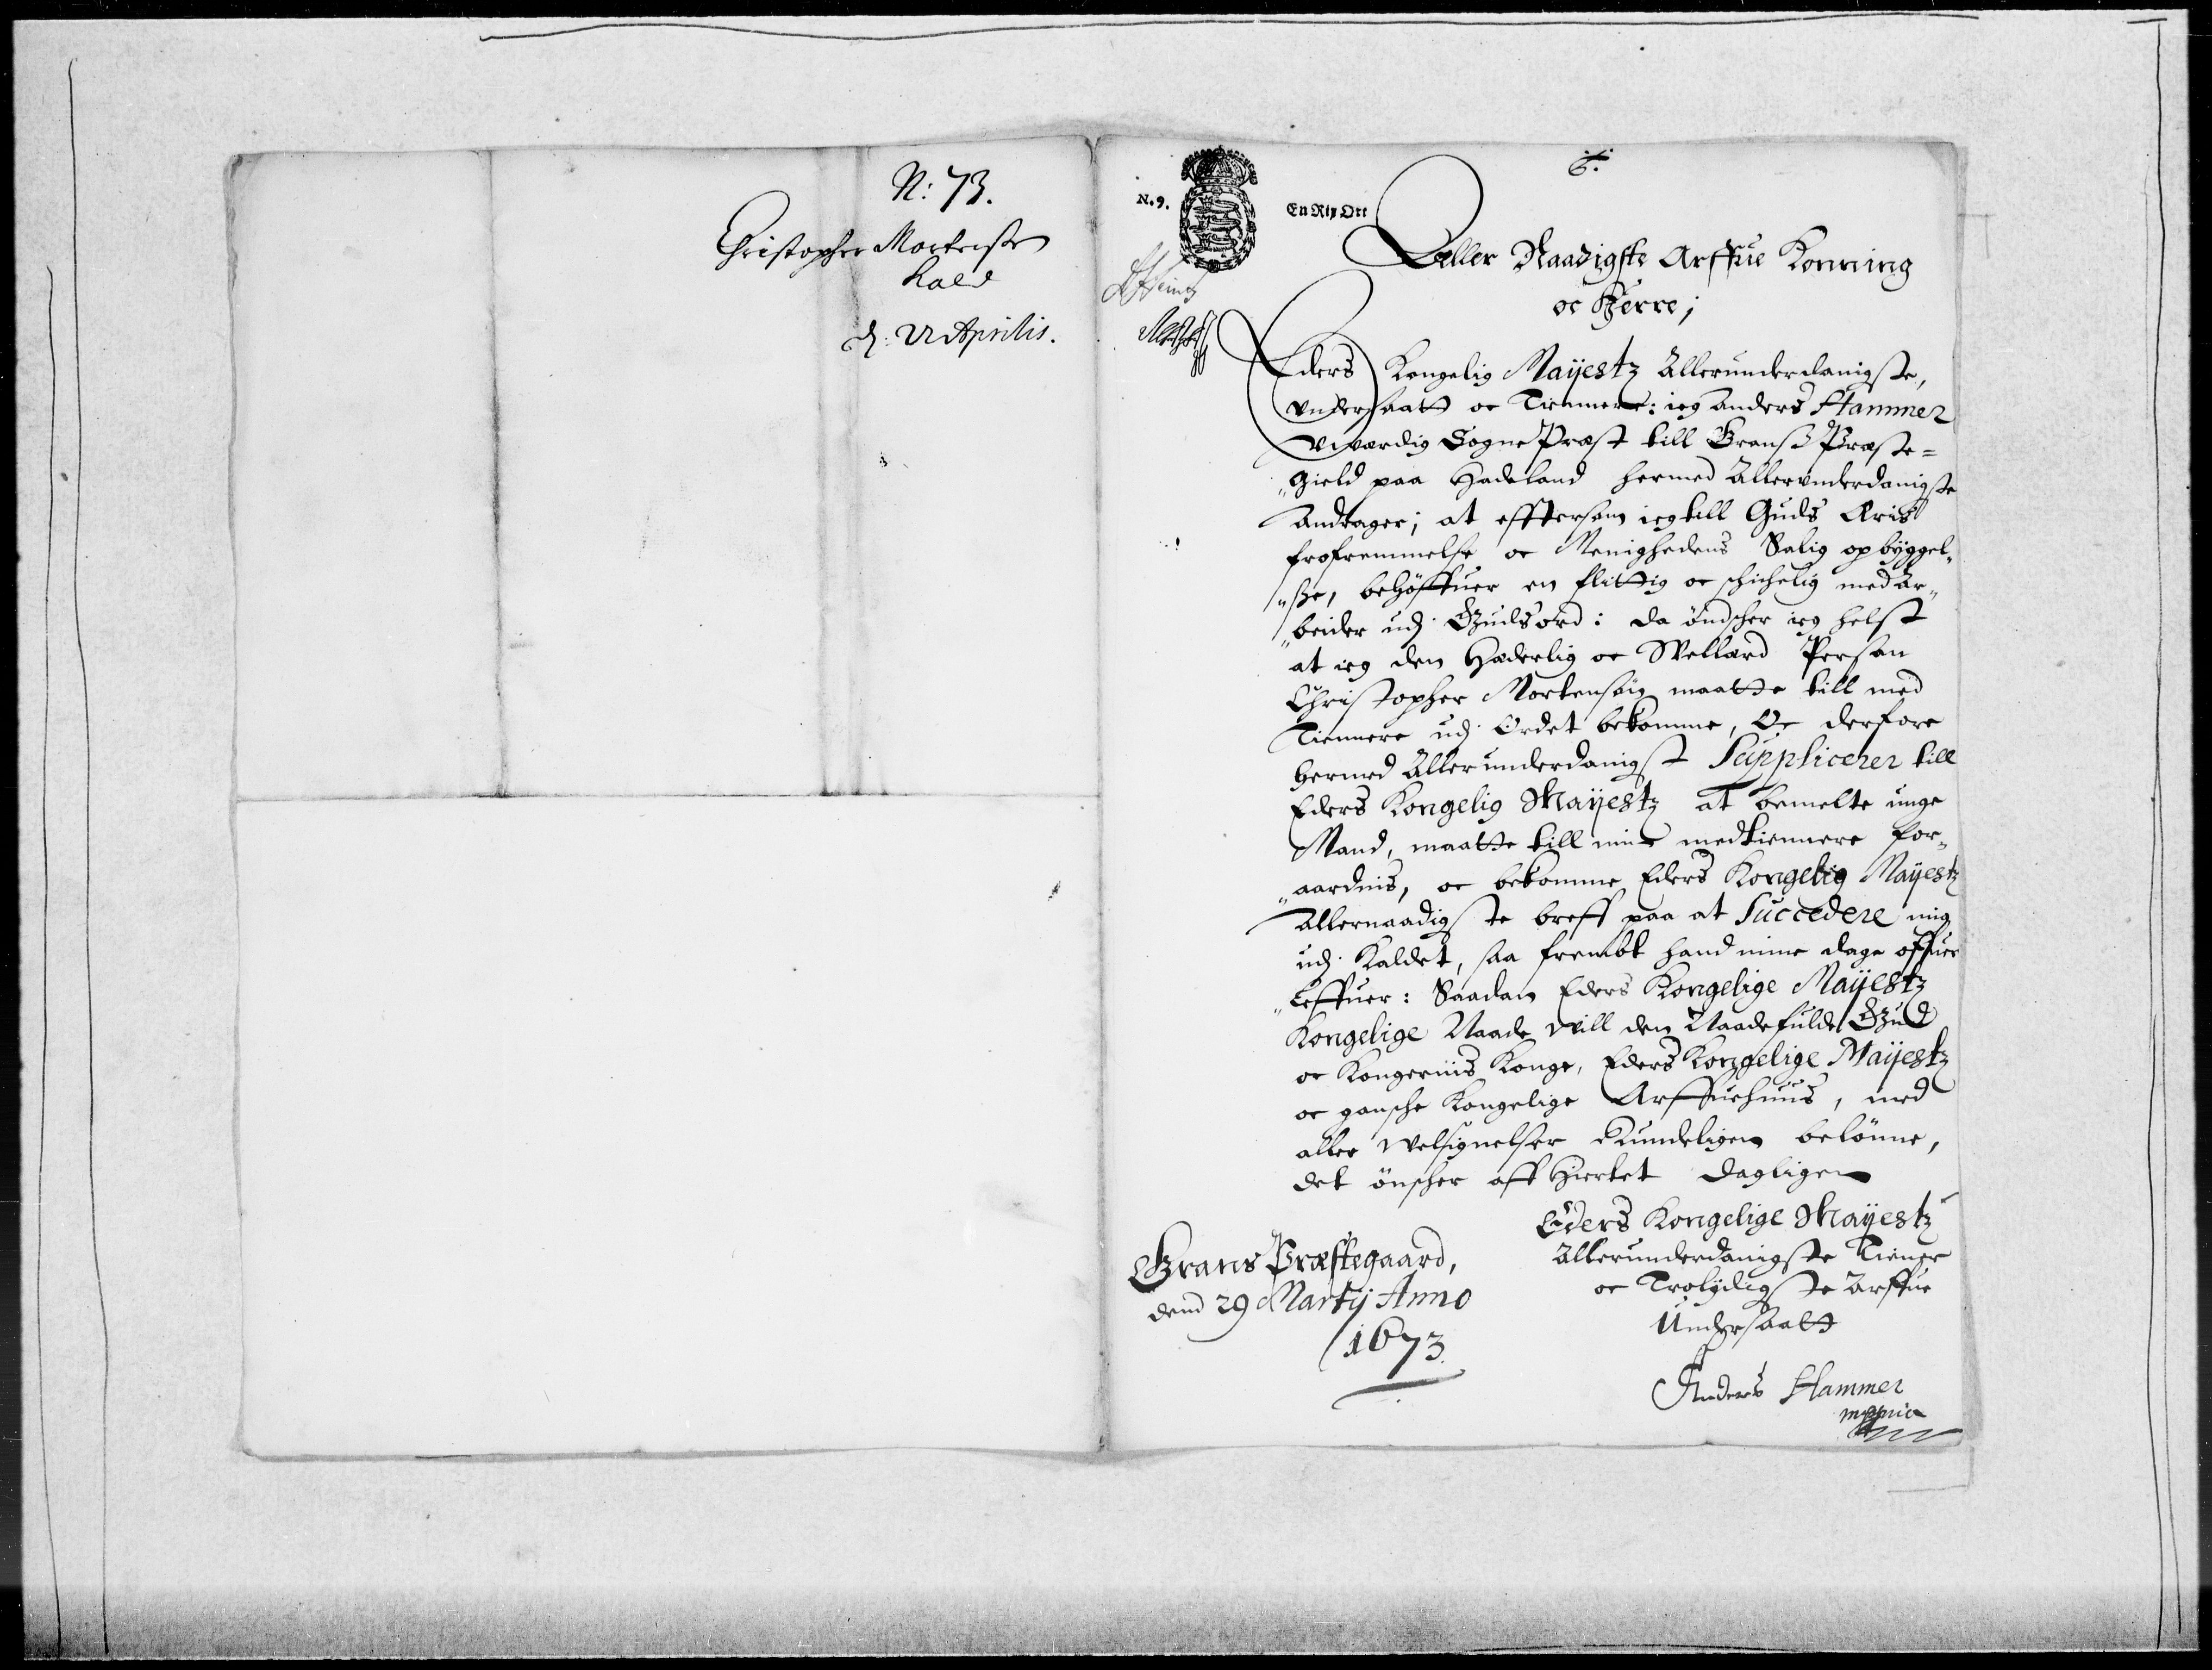 N: 73.
Christopher Mortensen
Kald
d: 22 Aprilis.
N. 9.
En Rix Ort
6.
Aller Naadigste Arffue Konning
oc Herre;
Eders Kongelig Mayestz Allerunderdanigste,
undersaatt oc Tiennere: ieg Anders Hammer
uwærdig Sogne Præst till Granss Præste=
gield paa Hadeland hermed Allerunderdanigste
Andrager; at efftersom ieg till Guds Æris
frofremmelse oc Menighedens Salig opbyggel„
„sse, behöffuer en flittig oc schichelig med Ar„
„beider udj Gudsord: da öndscher ieg helst
at ieg den Hæderlig oc Wellærd Person
Christopher Mortensön maatte till med
Tiennere udj Ordet bekomme, Oc derfore
hermed Allerunderdanigst Supplicerer till
Eders Kongelig Mayestz at bemelte unge
Mand, maatte till min medtiennere for„
„aardnis, oc bekomme Eders Kongelig Mayestz
Allernaadigste breff paa at Succedere mig
udj Kaldet, saa frembt hand mine dage offuer
„Leffuer: Saadan Eders Kongelige Mayestz
Kongelige Naade will den Naadefulde Gud
oc Kongernis Konge, Eders Kongelige Mayestz
oc gansche Kongelige Arffuehuus, med
aller Welsignelser Rundeligen belönne,
det önscher aff Hiertet dagligen
Eders Kongelige Mayestz
Allerunderdanigste Tiener
oc Trolydigste Arffue
Undersaatt
Anders Hammer
mppria
Grans Præstegaard,
dend 29 Martij Anno
1673.